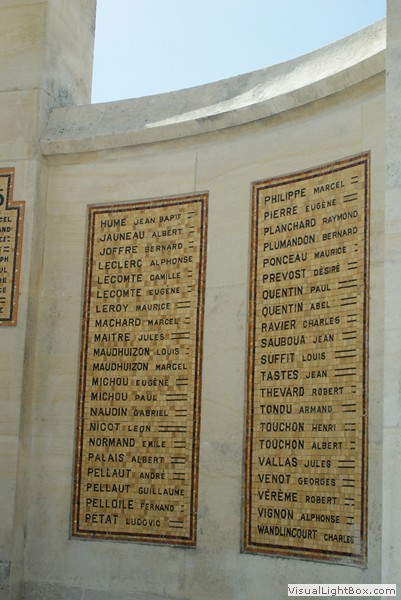 HUME JEAN BAPTE
JAUNEAU ALBERT
JOFFRE BERNARD
LECLERC ALPHONSE
LECOMTE CAMILLE
LECOMTE EUGENE
LEROY MAURICE
MACHARD MARCEL
MAITRE JULES
MAUDHUIZON LOUIS
MAUDHUIZON MARCEL
MICHOU EUGÈNE
MICHOU PAUL
NAUDIN GABRIEL
NICOT LEON
NORMAND EMILE
PALAIS ALBERT
PELLAUT ANDRÉ
PELLAUT GUILLAUME
PELLOILE FERNAND
PETAT LUDOVIC
PHILIPPE MARCEL
PIERRE EUGÈNE
PLANCHARD RAYMOND
PLUMANDON BERNARD
PONCEAU MAURICE
PREVOST DÉSIRÉ
QUENTIN PAUL
QUENTIN ABEL
RAVIER CHARLES
SAUBOUA JEAN
SUFFIT LOUIS
TASTES JEAN
THEVARD ROBERT
TONDU ARMAND
TOUCHON HENRI
TOUCHON ALBERT
VALLAS JULES
VENOT GEORGES
VÉRÈME ROBERT
VIGNON ALPHONSE
WANDLINCOURT CHARLES
VisualLightBox.com